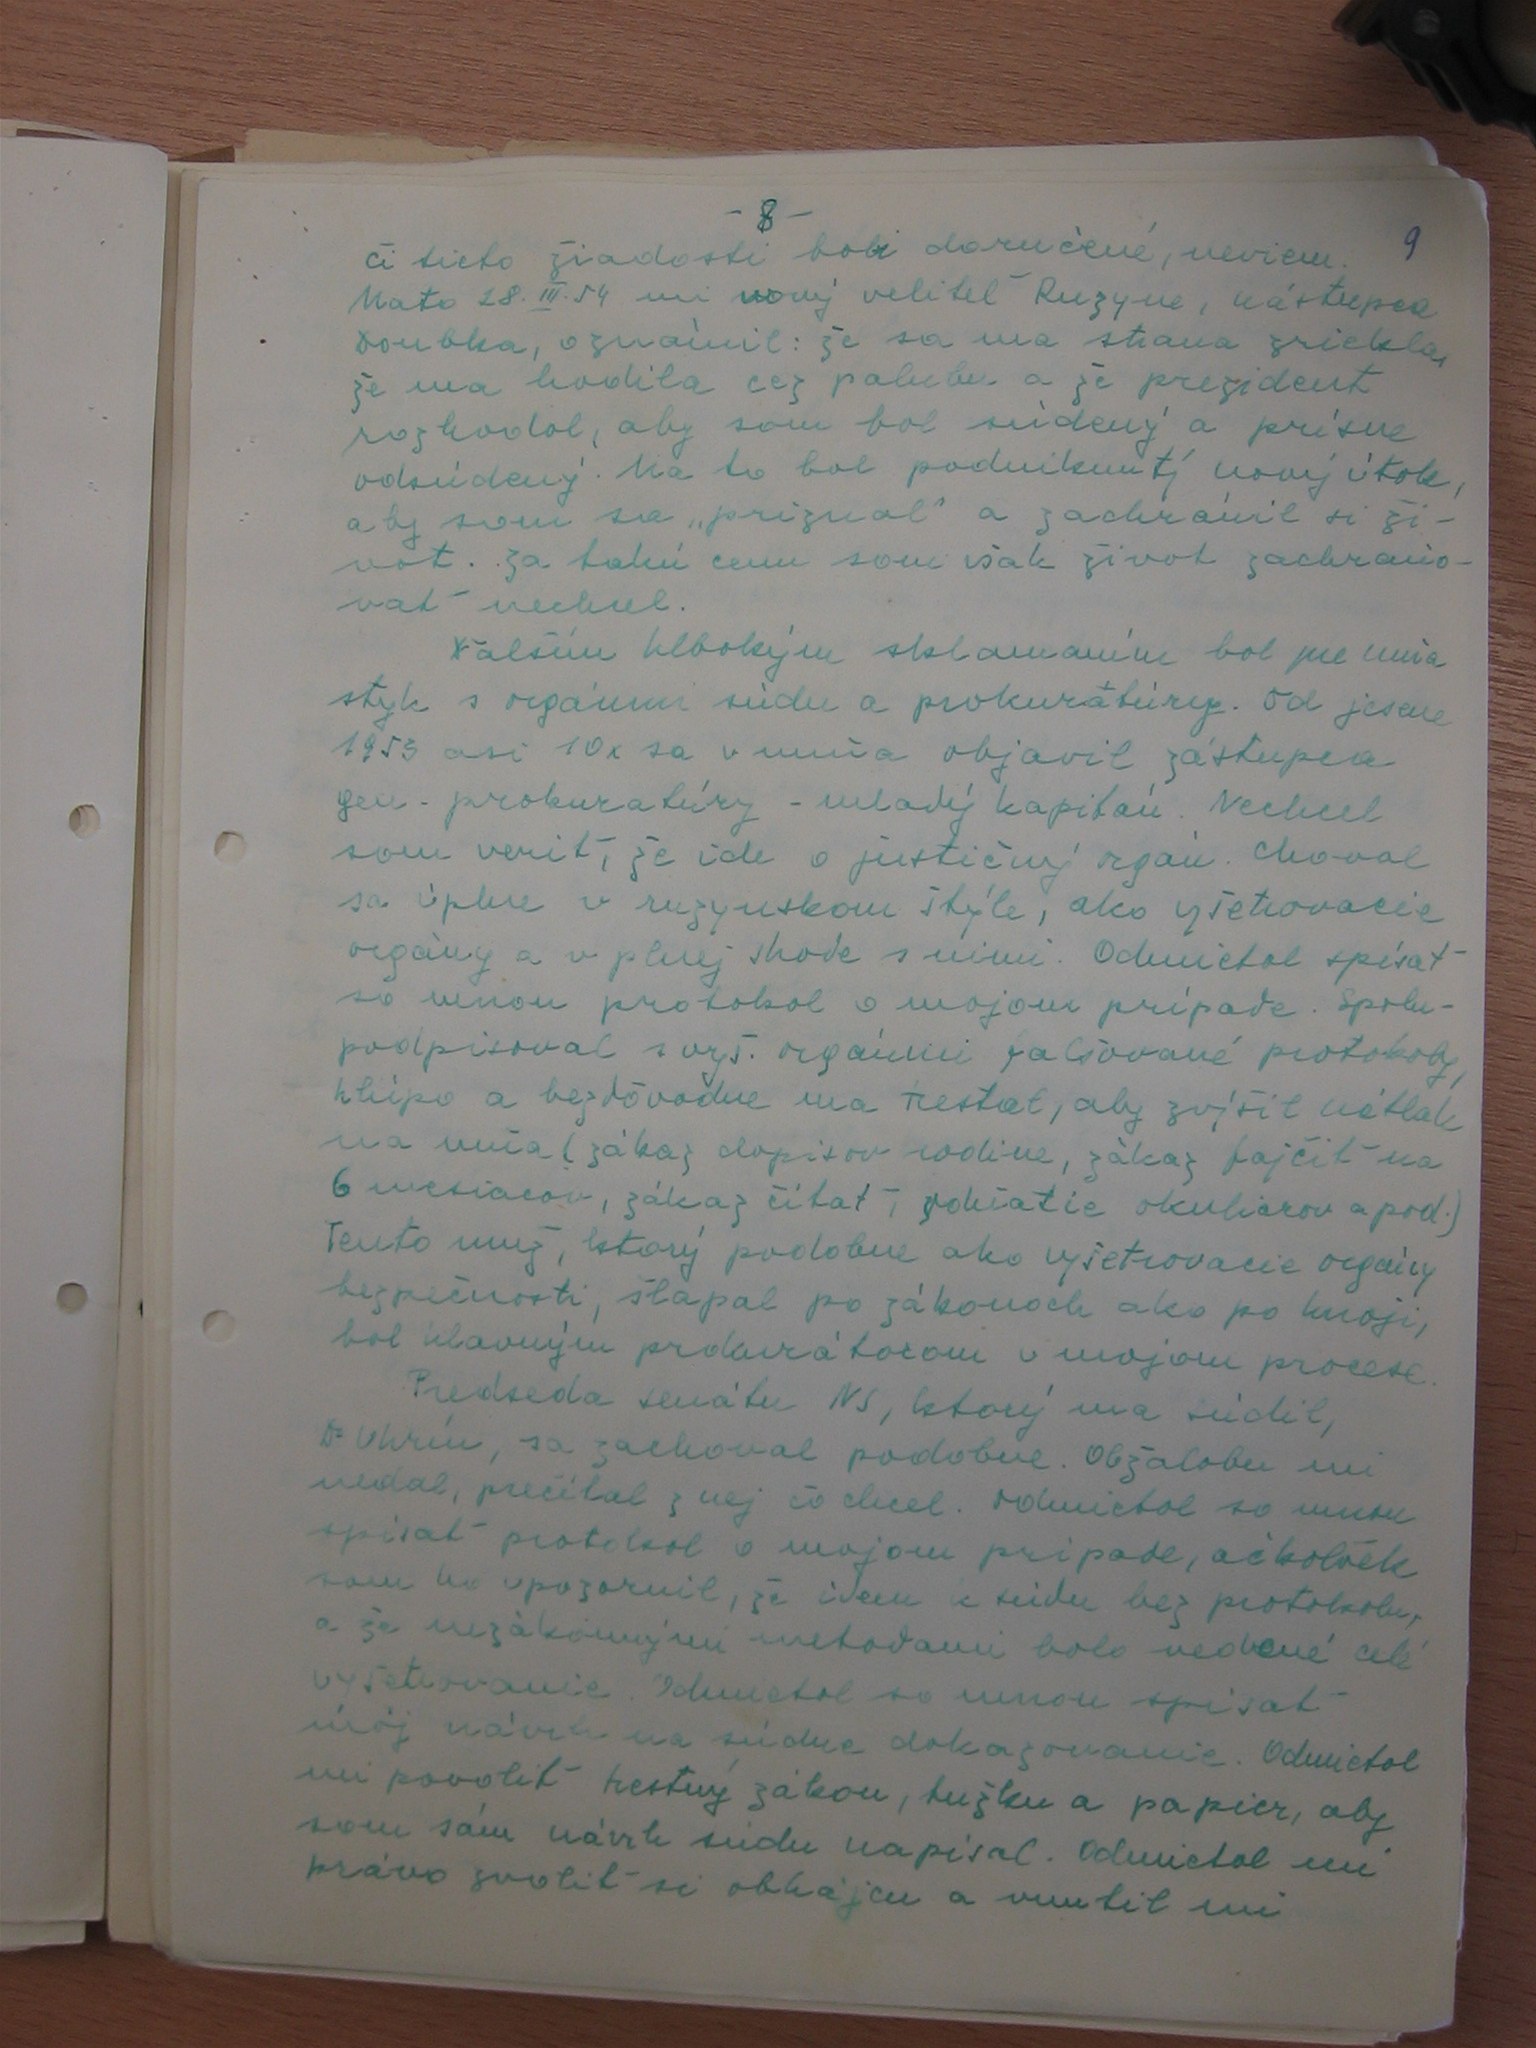 - 8 -
9
či tieto žiadosti boli doručené, neviem.
Nato 28. III. 54 mi nový veliteľ Ruzyne, nástupca
Doubka, oznámil: že sa ma strana zriekla,
že ma hodila cez palubu a že prezident
rozhodol, aby som bol súdený a prísne
odsúdený. Na to bol podniknutý nový útok,
aby som sa „priznal" a zachránil si ži-
vot. Za takú cenu som však život zachraňo-
vať nechcel.
Ďalším hlbokým sklamaním bol pre mňa
styk s orgánmi súdu a prokuratúry. Od jesene
1953 asi 10x sa u mňa objavil zástupca
gen. prokuratúry - mladý kapitán. Nechcel
som veriť, že ide o justičný orgán. Choval
sa úplne v ruzynskom štýle, ako vyšetrovacie
orgány a v plnej shode s nimi. Odmietol spísať
so mnou protokol o mojom prípade. Spolu-
podpisoval s vyš. orgánmi falšované protokoly,
hlúpo a bezdôvodne ma trestal, aby zvýšil nátlak
na mňa (zákaz dopisov rodine, zákaz fajčiť na
6 mesiacov, zákaz čítať, odňatie okuliarov a pod.)
Tento muž, ktorý podobne ako vyšetrovacie orgány
bezpečnosti, šlapal po zákonoch ako po hnoji,
bol hlavným prokurátorom v mojom procese.
Predseda senátu NS, ktorý ma súdil,
Dr Uhrín, sa zachoval podobne. Obžalobu mi
nedal, prečítal z nej čo chcel. Odmietol so mnou
spísať protokol o mojom prípade, ačkoľvek
som ho upozornil, že idem k súdu bez protokolu,
a že nezákonnými metodami bolo vedené celé
vyšetrovanie. Odmietol so mnou spísať
môj návrh na súdne dokazovanie. Odmietol
mi povoliť trestný zákon, tužku a papier, aby
som sám návrh súdu napísal. Odmietol mi
právo zvoliť si obhájcu a vnutil mi